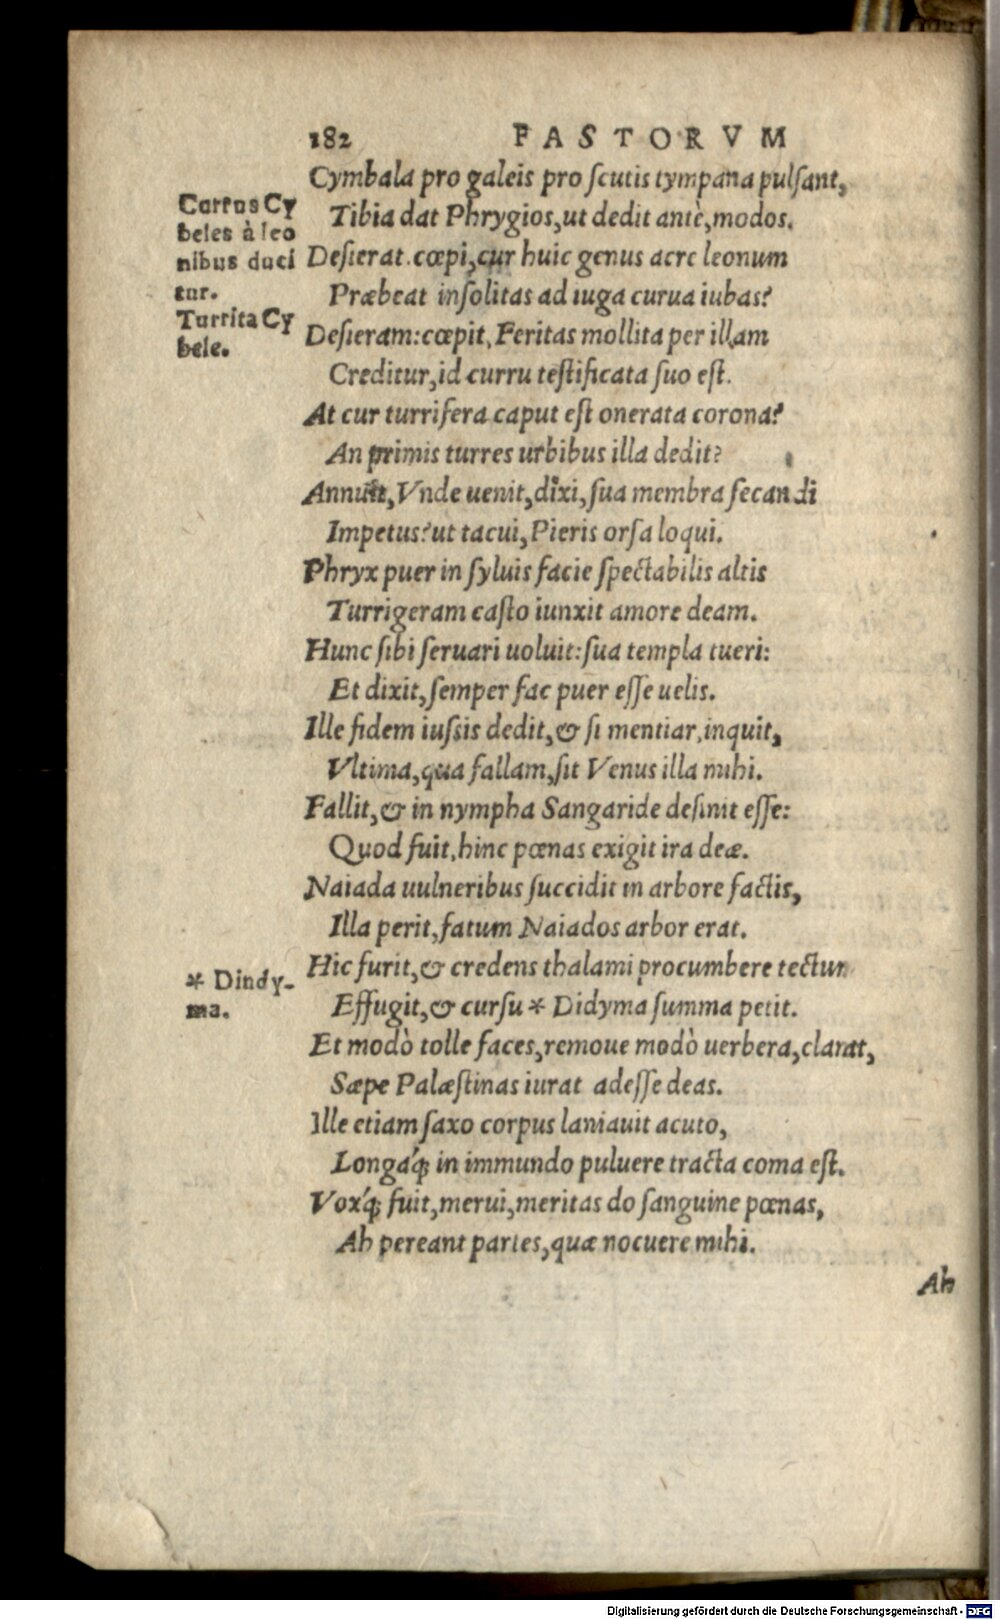 182 FASTORVM
Cymbala pro galeis pro ſcutis tympana pulſant,
Tibia dat Phrygios, ut dedit antè, modos.
Deſierat. cœpi, cur huic genus acre leonum
Præbeat inſolitas ad iuga curua iubas?
Deſieram: cœpit, Feritas mollita per illam
Creditur, id curru teſtificata ſuo eſt.
At cur turrifera caput eſt onerata corona?
An primis turres urbibus illa dedit?
Annuit, Vnde uenit, dixi, ſua membra ſecandi
Impetus? ut tacui, Pieris orſa loqui.
Phryx puer in ſyluis facie ſpectabilis altis
Turrigeram caſto iunxit amore deam.
Hunc ſibi ſeruari uoluit: ſua templa tueri:
Et dixit, ſemper fac puer eſſe uelis.
Ille fidem iuſsis dedit, & ſi mentiar, inquit,
Vltima, qua fallam, ſit Venus illa mihi.
Fallit, & in nympha Sangaride deſinit eſſe:
Quod fuit, hinc pœnas exigit ira deæ.
Naiada uulneribus ſuccidit in arbore factis,
Illa perit, fatum Naiados arbor erat.
Hic furit, & credens thalami procumbere tectum
Effugit, & curſu * Didyma ſumma petit.
Et modò tolle faces, remoue modò uerbera, clamat,
Sæpe Palæſtinas iurat adeſſe deas.
Ille etiam ſaxo corpus laniauit acuto,
Longáq; in immundo puluere tracta coma eſt.
Vóxq; fuit, merui, meritas do ſanguine pœnas,
Ah pereant partes, quæ nocuere mihi.
Ah
Currus Cy
beles à leo
nibus duci
tur.
Turrita Cy
bele.
* Dindy-
ma.
Digitalisierung gefördert durch die Deutsche Forschungsgemeinschaft - DFG